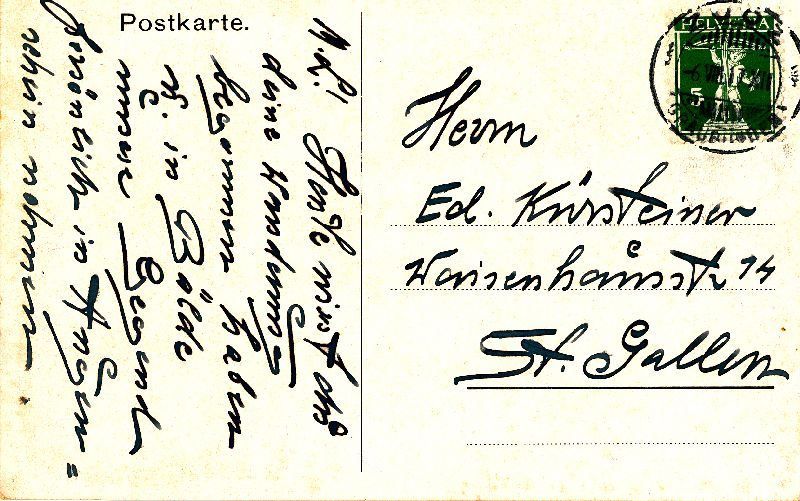 Postkarte.
HELVETIA
5
Heute wirst du
deine Wanderung
begonnen haben
u. in Bälde
unsere Gegend
persönlich in Augen=
schein nehmen.
Herrn
Ed. Kürsteiner
Waisenhausstr 14
St. Gallen